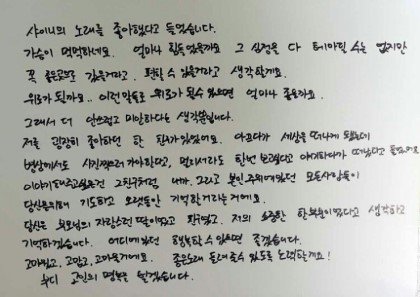 샤이니의 노래를 좋아했다고 들었습니다.
가슴이 먹먹하네요. 얼마나 힘들었을까요 그 심정을 다 헤아릴 수는 없지만
꼭 좋은곳으로 갔을거라고. 편할 수 있을거라고 생각할게요.
위로가 될까요.. 이런 말들로 위로가 될수 있으면 얼마나 좋을까요.
그래서 더 안쓰럽고 미안하다는 생각뿐입니다.
저를 굉장히 좋아하던 한 친구가 있었어요. 아프다가 세상을 떠나게 됐는데
병상에서도 사지 찍으러 가야한다고, 멀리서라도 한번 보고싶다고 이야기하다가 떠났다고 들었어요
이야기해주고싶은건 그친구처럼 내가. 그리고 본인 주위에 있던 모든사람들이
당신을위해 기도하고 오랫동안 기억할거라는거에요.
당신은 부모님의 자랑스런 딸이었고 친구였고. 저의 소중한 한부분이었다고 생각하고
기억하겠습니다. 어디에있던 행복할 수 있으면 좋겠습니다.
고마웠고, 고맙고, 고마울거에요. 좋은노래 들려줄수 있도록 노력할게요!
부디 고인의 명복을 빌겠습니다.